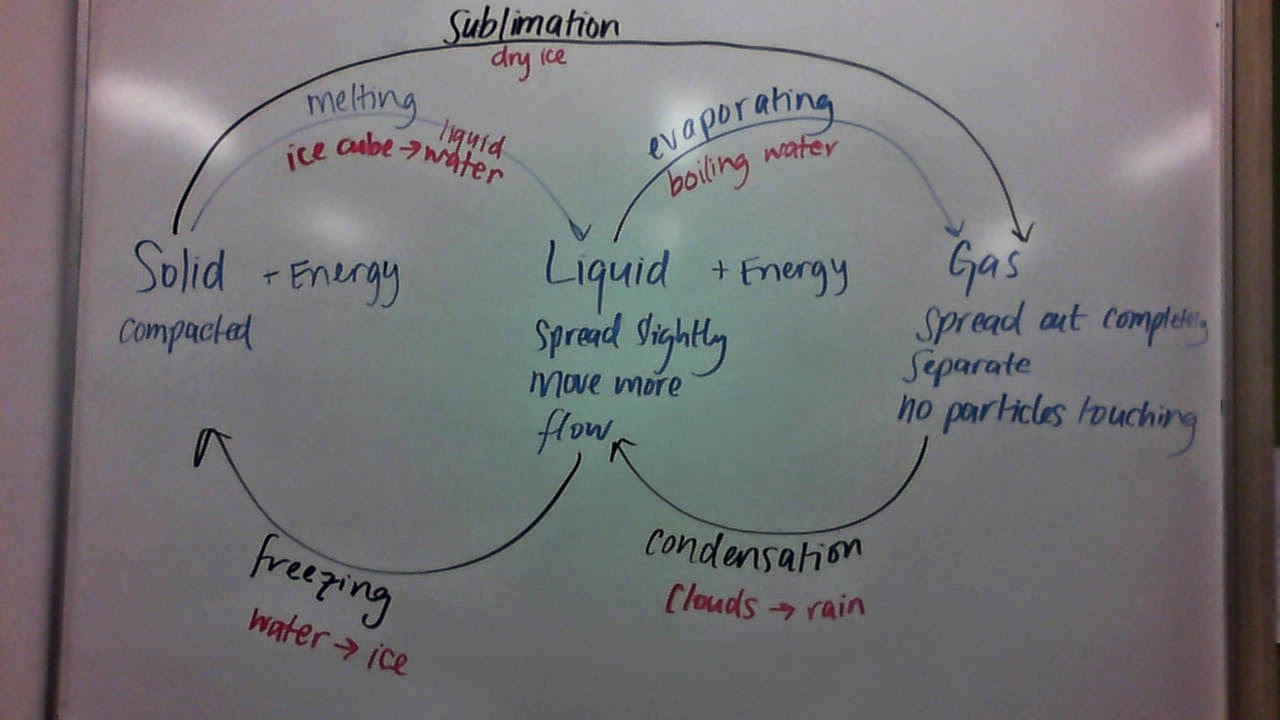 Sublimation
dry ice
melting
ice cube → liquid water
evaporating
boiling water
Solid + Energy
compacted
Liquid + Energy
Spread slightly
move more
flow
Gas
Spread out completely
Separate
no particles touching
freezing
water → ice
condensation
Clouds → rain